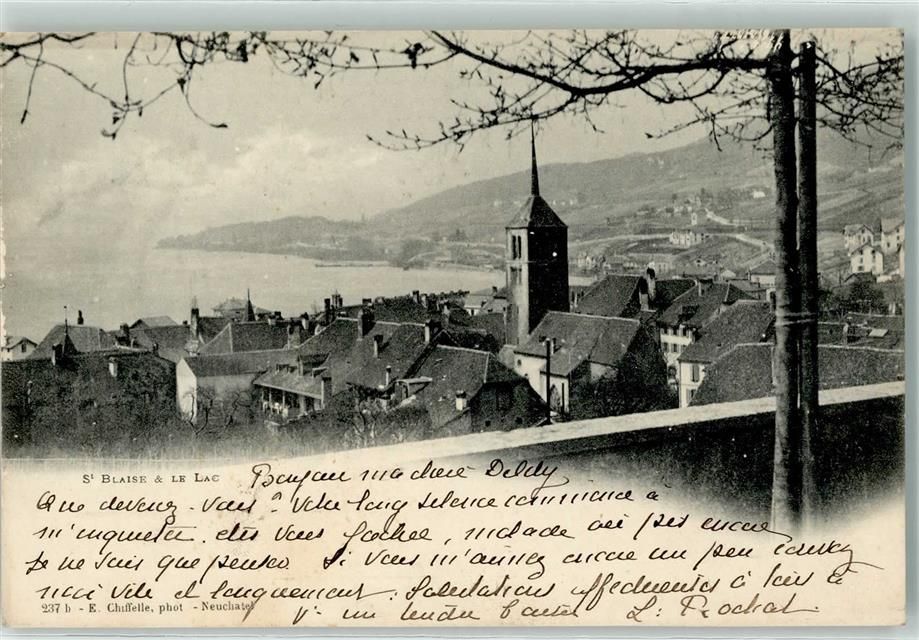 St BLAISE & LE LAC
Bonjour ma chère Deldy
Que devenez-vous? Votre long silence commence à
m'inquieter. êtes vous fachée, malade ou pis encore
Je ne sais que penser. Si vous m'aimez encore un peu écrivez
moi vite et longuement. Salutations affectueuses à tous à
un tendre baiser L. Rochat.
237 b - E. Chiffelle, phot - Neuchatel